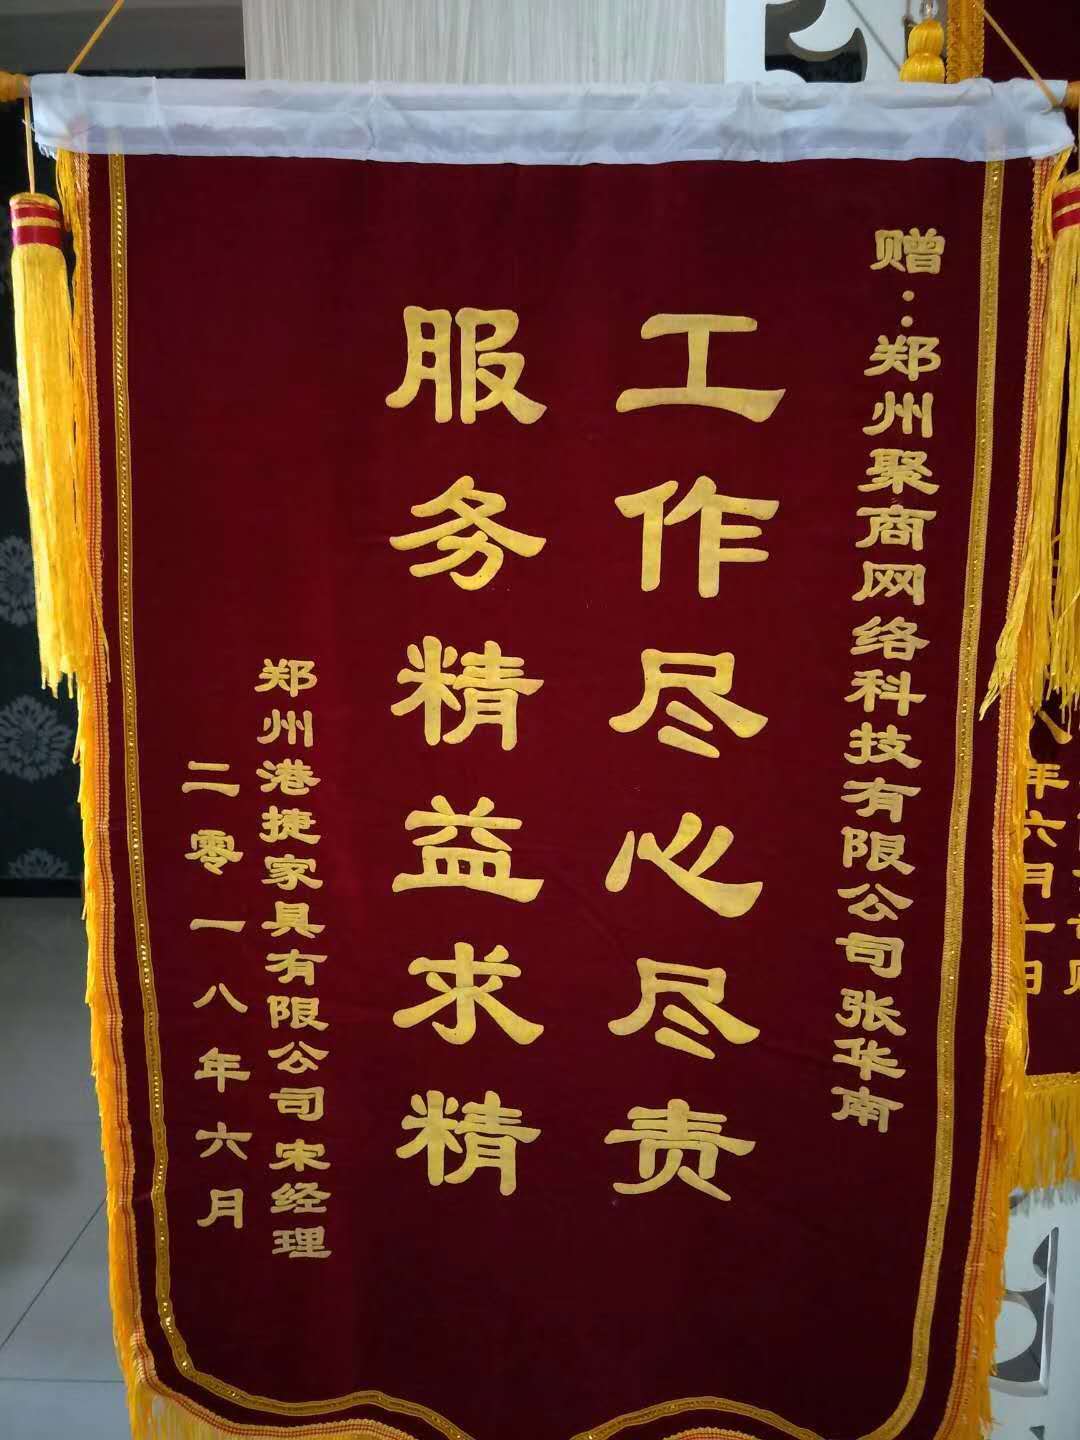 赠：郑州聚商网络科技有限公司张华南
工作尽心尽责
服务精益求精
郑州港捷家具有限公司 宋经理
二零一八年六月
年六月一日